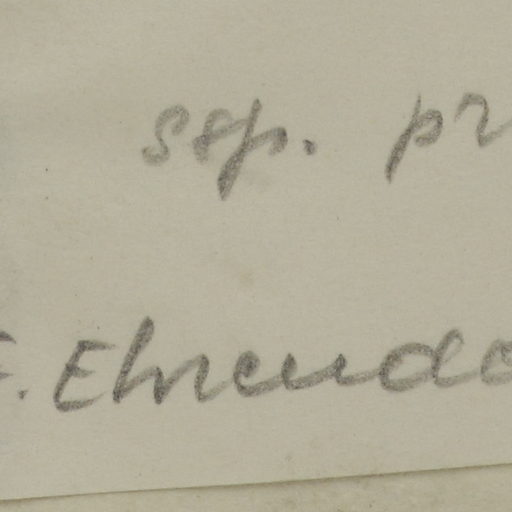 ssp. pr
F. Ehrendo